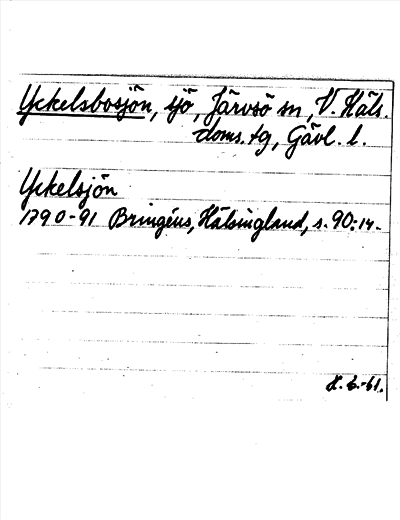 Yckelsbosjön, sjö, Järvsö sn, V. Häls.
doms. tg, Gävl. l.
Yckelsjön
1790-91 Bringéus, Hälsingland, s. 90:14.
K. G.-61.